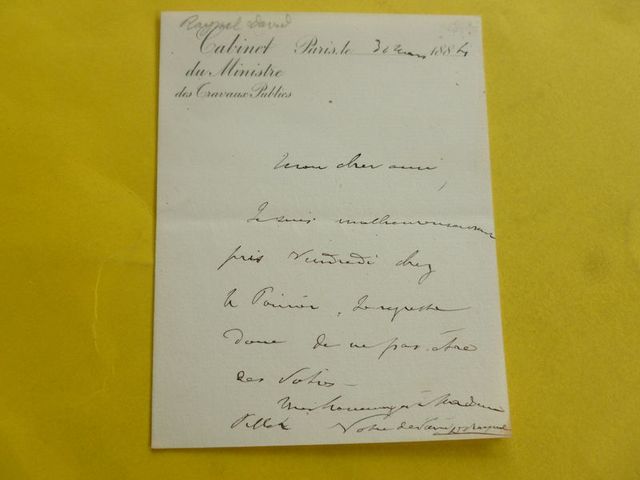 Raynal David
Cabinet Paris, le 30 mars 1884
du Ministre
des Travaux Publics
Mon cher ami,
Je suis malheureusement
pris Vendredi chez
Je regrette
donc de ne pas être
des vôtres –
Mes hommages à Madame
Votre dévoué